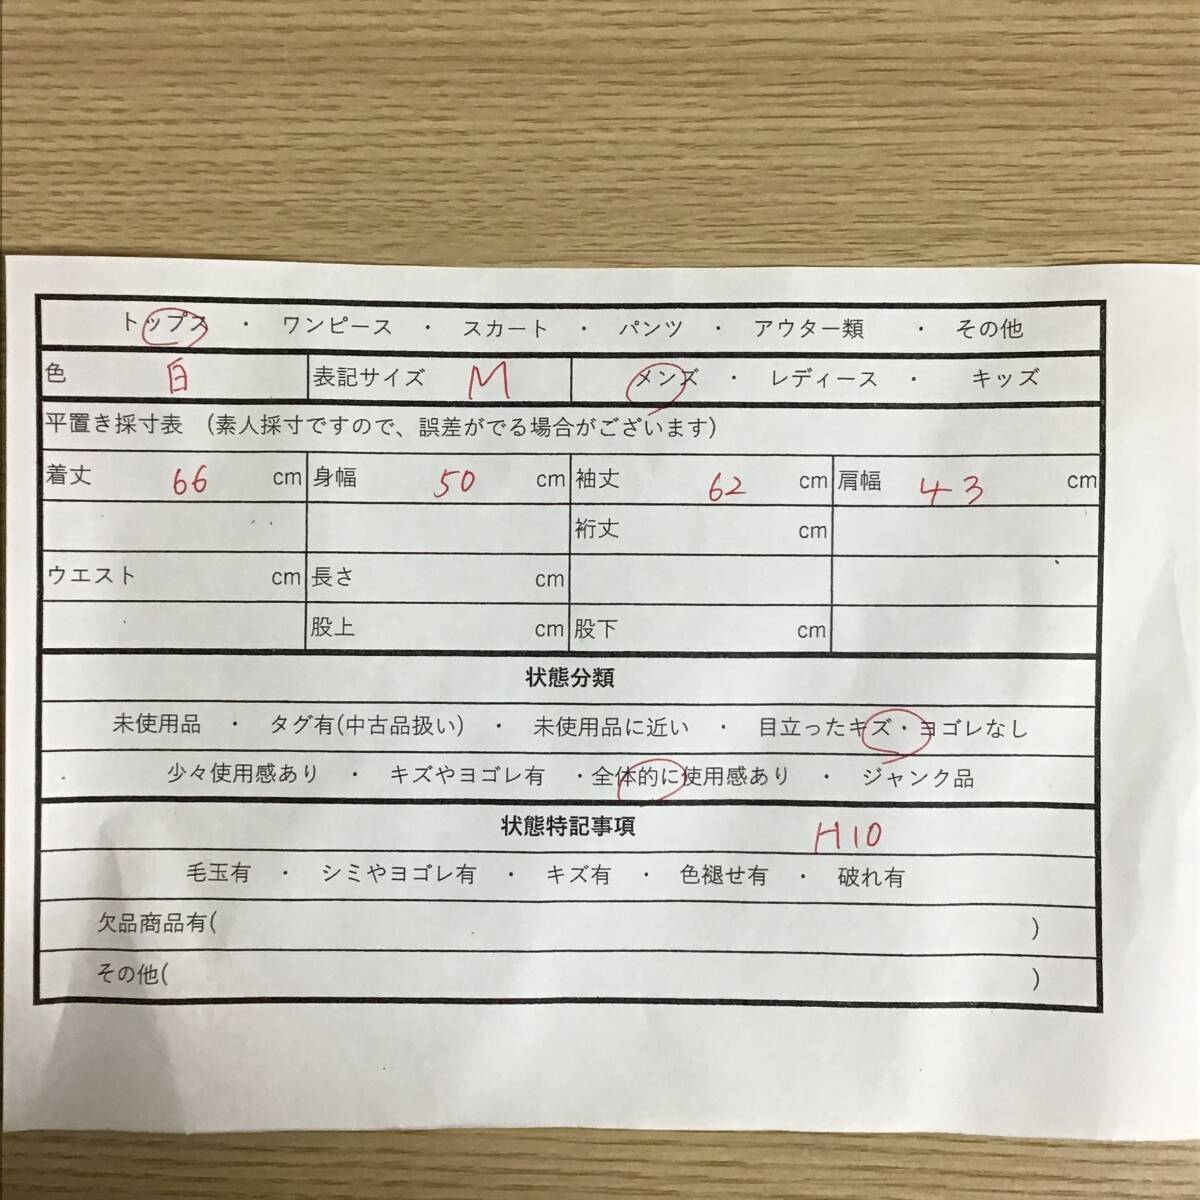 トップス ・ ワンピース ・ スカート ・ パンツ ・ アウター類 ・ その他
色 白 表記サイズ M メンズ ・ レディース ・ キッズ
平置き採寸表 (素人採寸ですので、誤差がでる場合がございます)
着丈 66 cm 身幅 50 cm 袖丈 62 cm 肩幅 43 cm
裄丈 cm
ウエスト cm 長さ cm
股上 cm 股下 cm
状態分類
未使用品 ・ タグ有(中古品扱い) ・ 未使用品に近い ・ 目立ったキズ・ヨゴレなし
少々使用感あり ・ キズやヨゴレ有 ・全体的に使用感あり ・ ジャンク品
状態特記事項 H10
毛玉有 ・ シミやヨゴレ有 ・ キズ有 ・ 色褪せ有 ・ 破れ有
欠品商品有( )
その他( )